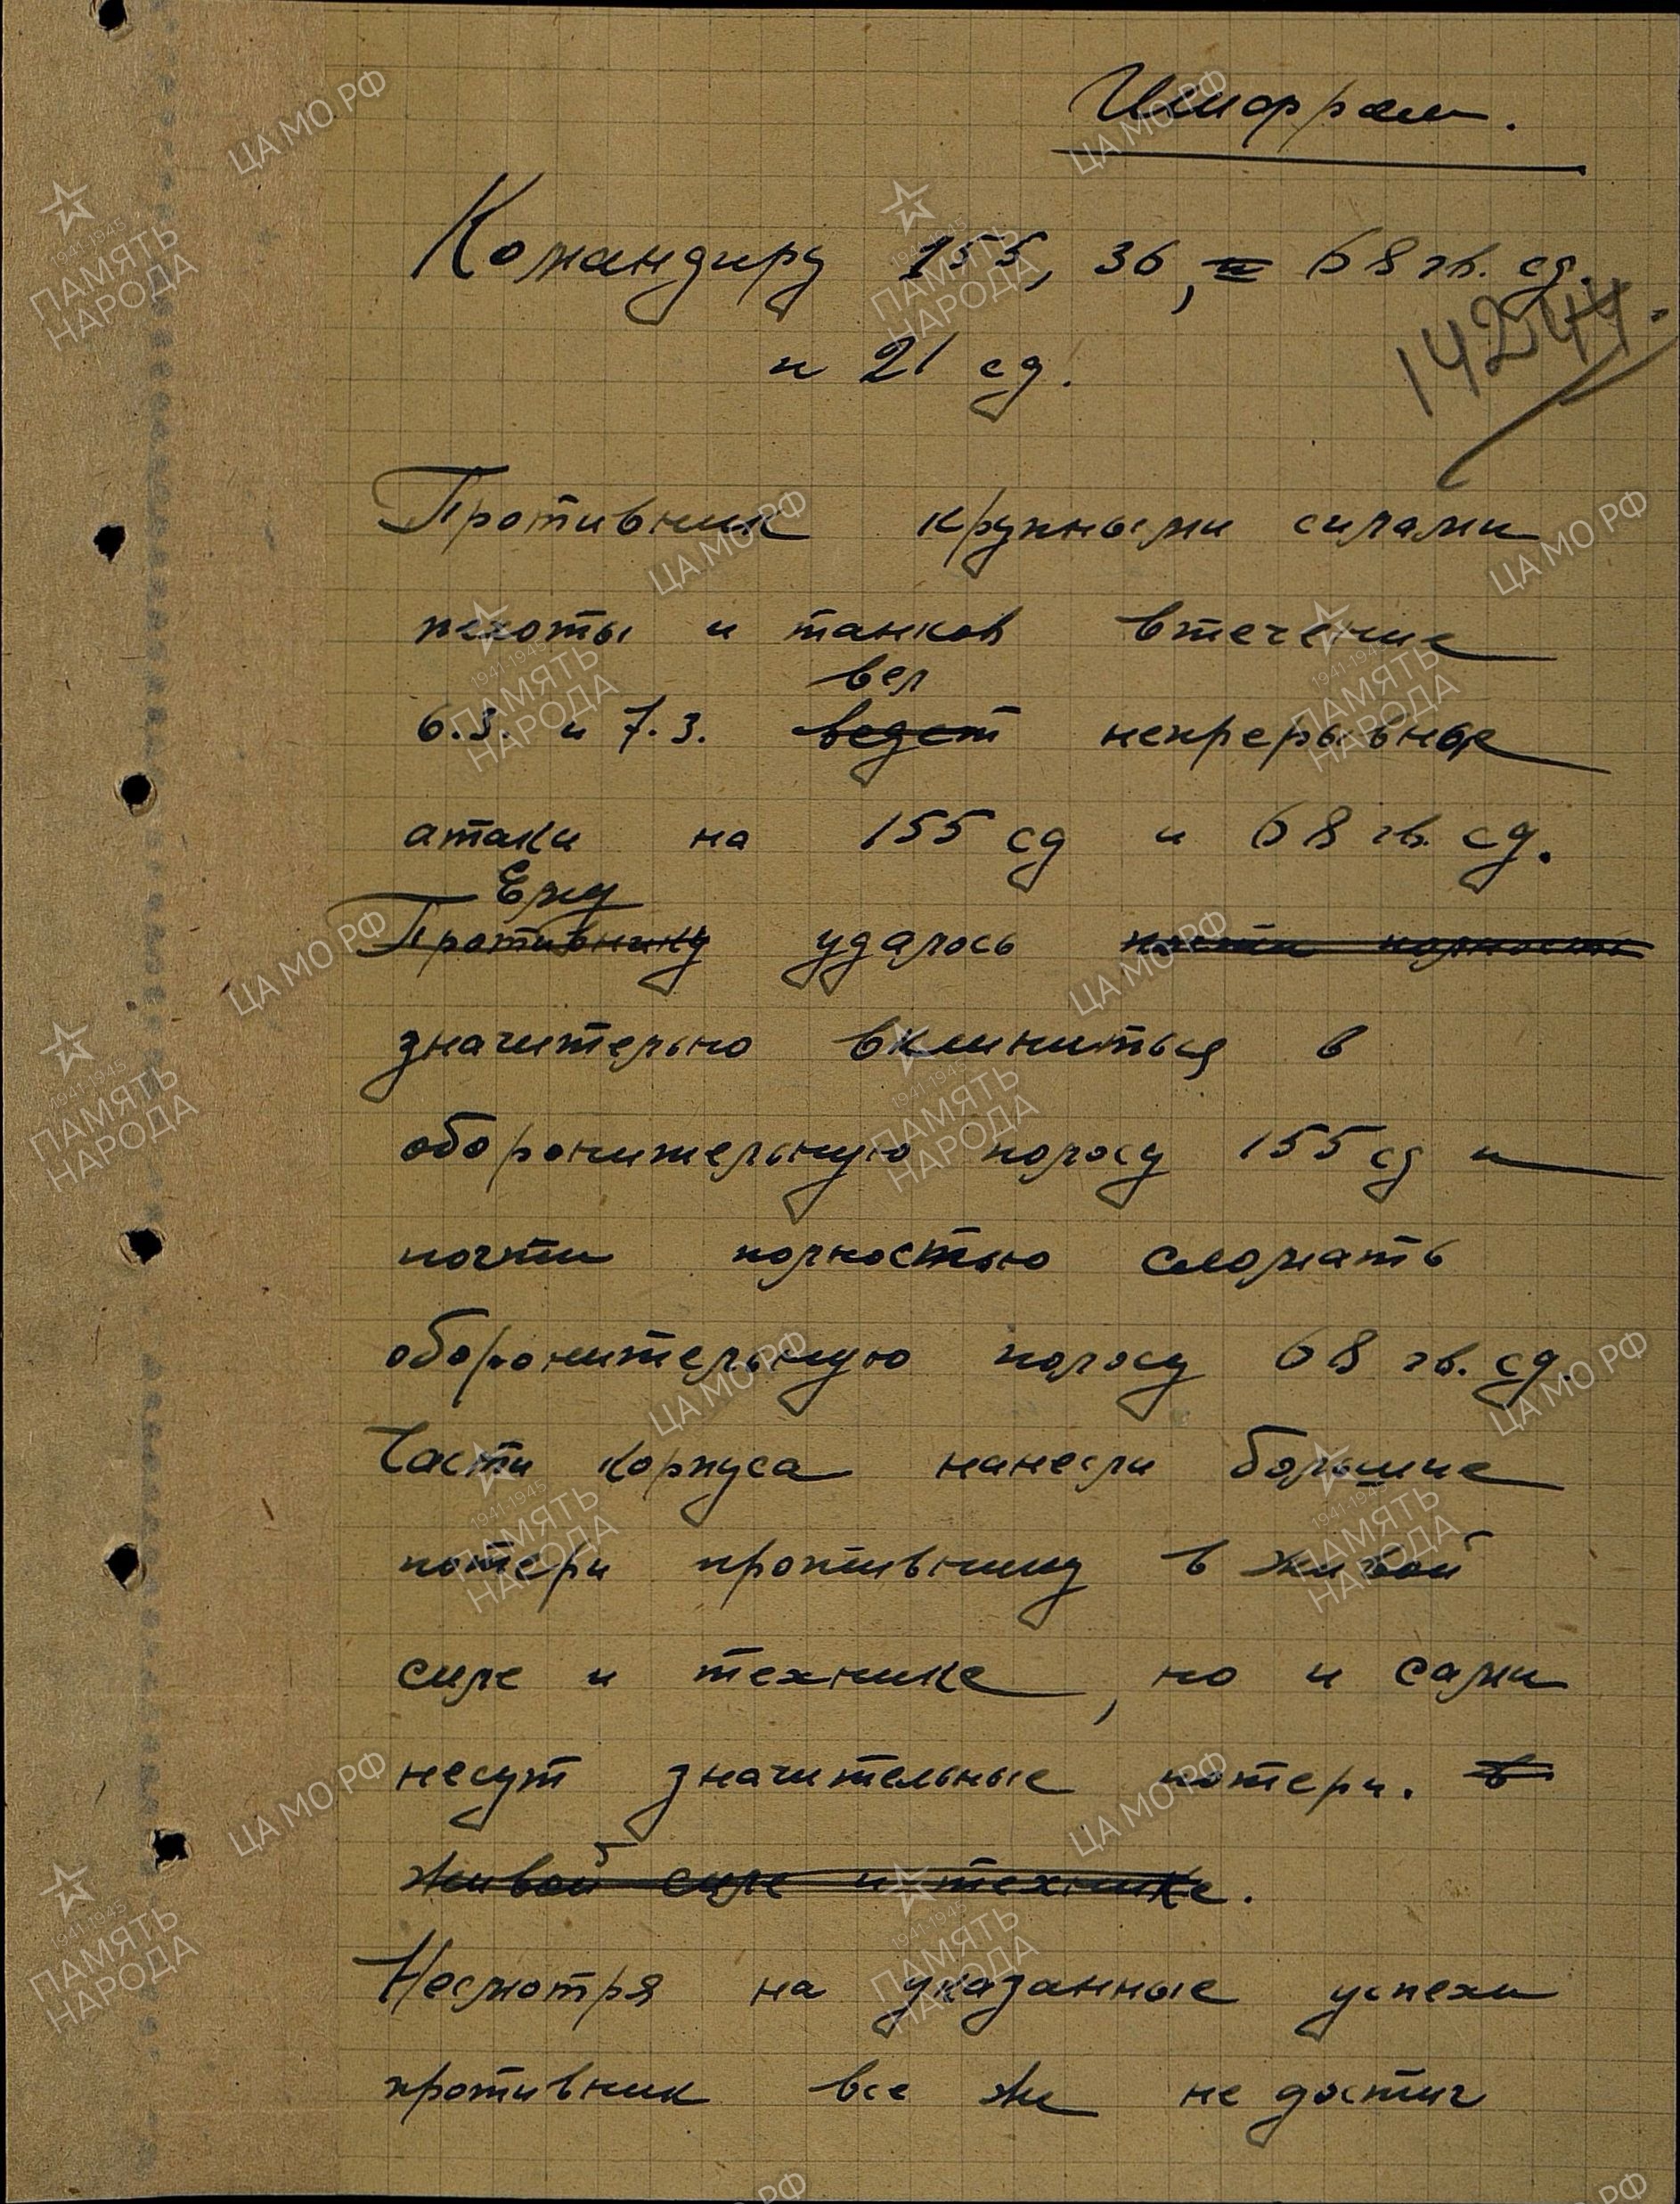 Шифром.
Командиру 155, 36, и 68 гв. сд.
и 21 сд.
14244.
Противник крупными силами
пехоты и танков втечение
вел
6.3. и 7.3. ведет непрерывные
атаки на 155 сд и 68 гв. сд.
Ему
Противнику удалось почти полностью
значительно вклиниться в
оборонительную полосу 155 сд и
почти полностью сломать
оборонительную полосу 68 гв. сд.
Части корпуса нанесли большие
потери противнику в живой
силе и технике, но и сами
несут значительные потери. в
живой силе и технике.
Несмотря на указанные успехи
противник все же не достиг
ЦА МО РФ
1941-1945
ПАМЯТЬ
НАРОДА